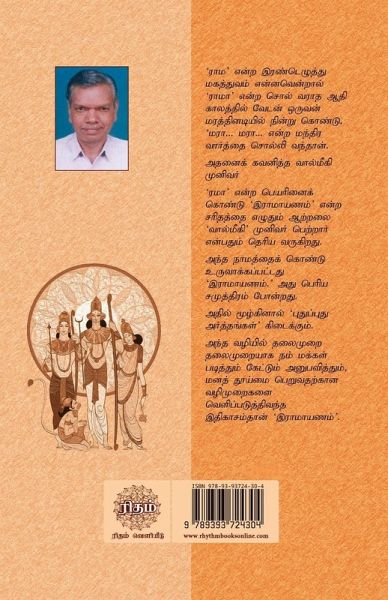 ‘ராம’ என்ற இரண்டெழுத்து
மகத்துவம் என்னவென்றால்
‘ராமா’ என்ற சொல் வராத ஆதி
காலத்தில் வேடன் ஒருவன்
மரத்தினடியில் நின்று கொண்டு,
‘மரா... மரா... என்ற மந்திர
வார்த்தை சொல்லி வந்தான்.
அதனைக் கவனித்த வால்மீகி
முனிவர்
‘ரமா’ என்ற பெயரினைக்
கொண்டு ‘இராமாயணம்’ என்ற
சரிதத்தை எழுதும் ஆற்றலை
‘வால்மீகி’ முனிவர் பெற்றார்
என்பதும் தெரிய வருகிறது.
அந்த நாமத்தைக் கொண்டு
உருவாக்கப்பட்டது
‘இராமாயணம்.’ அது பெரிய
சமுத்திரம் போன்றது.
அதில் மூழ்கினால் ‘புதுப்புது
அர்த்தங்கள்’ கிடைக்கும்.
அந்த வழியில் தலைமுறை
தலைமுறையாக நம் மக்கள்
படித்தும் கேட்டும் அனுபவித்தும்,
மனத் தூய்மை பெறுவதற்கான
வழிமுறைகளை
வெளிப்படுத்திவந்த
இதிகாசம்தான் ‘இராமாயணம்’.
ரிதம்
ரிதம் வெளியீடு
ISBN 978-93-93724-30-4
9789393724304
www.rhythmbooksonline.com